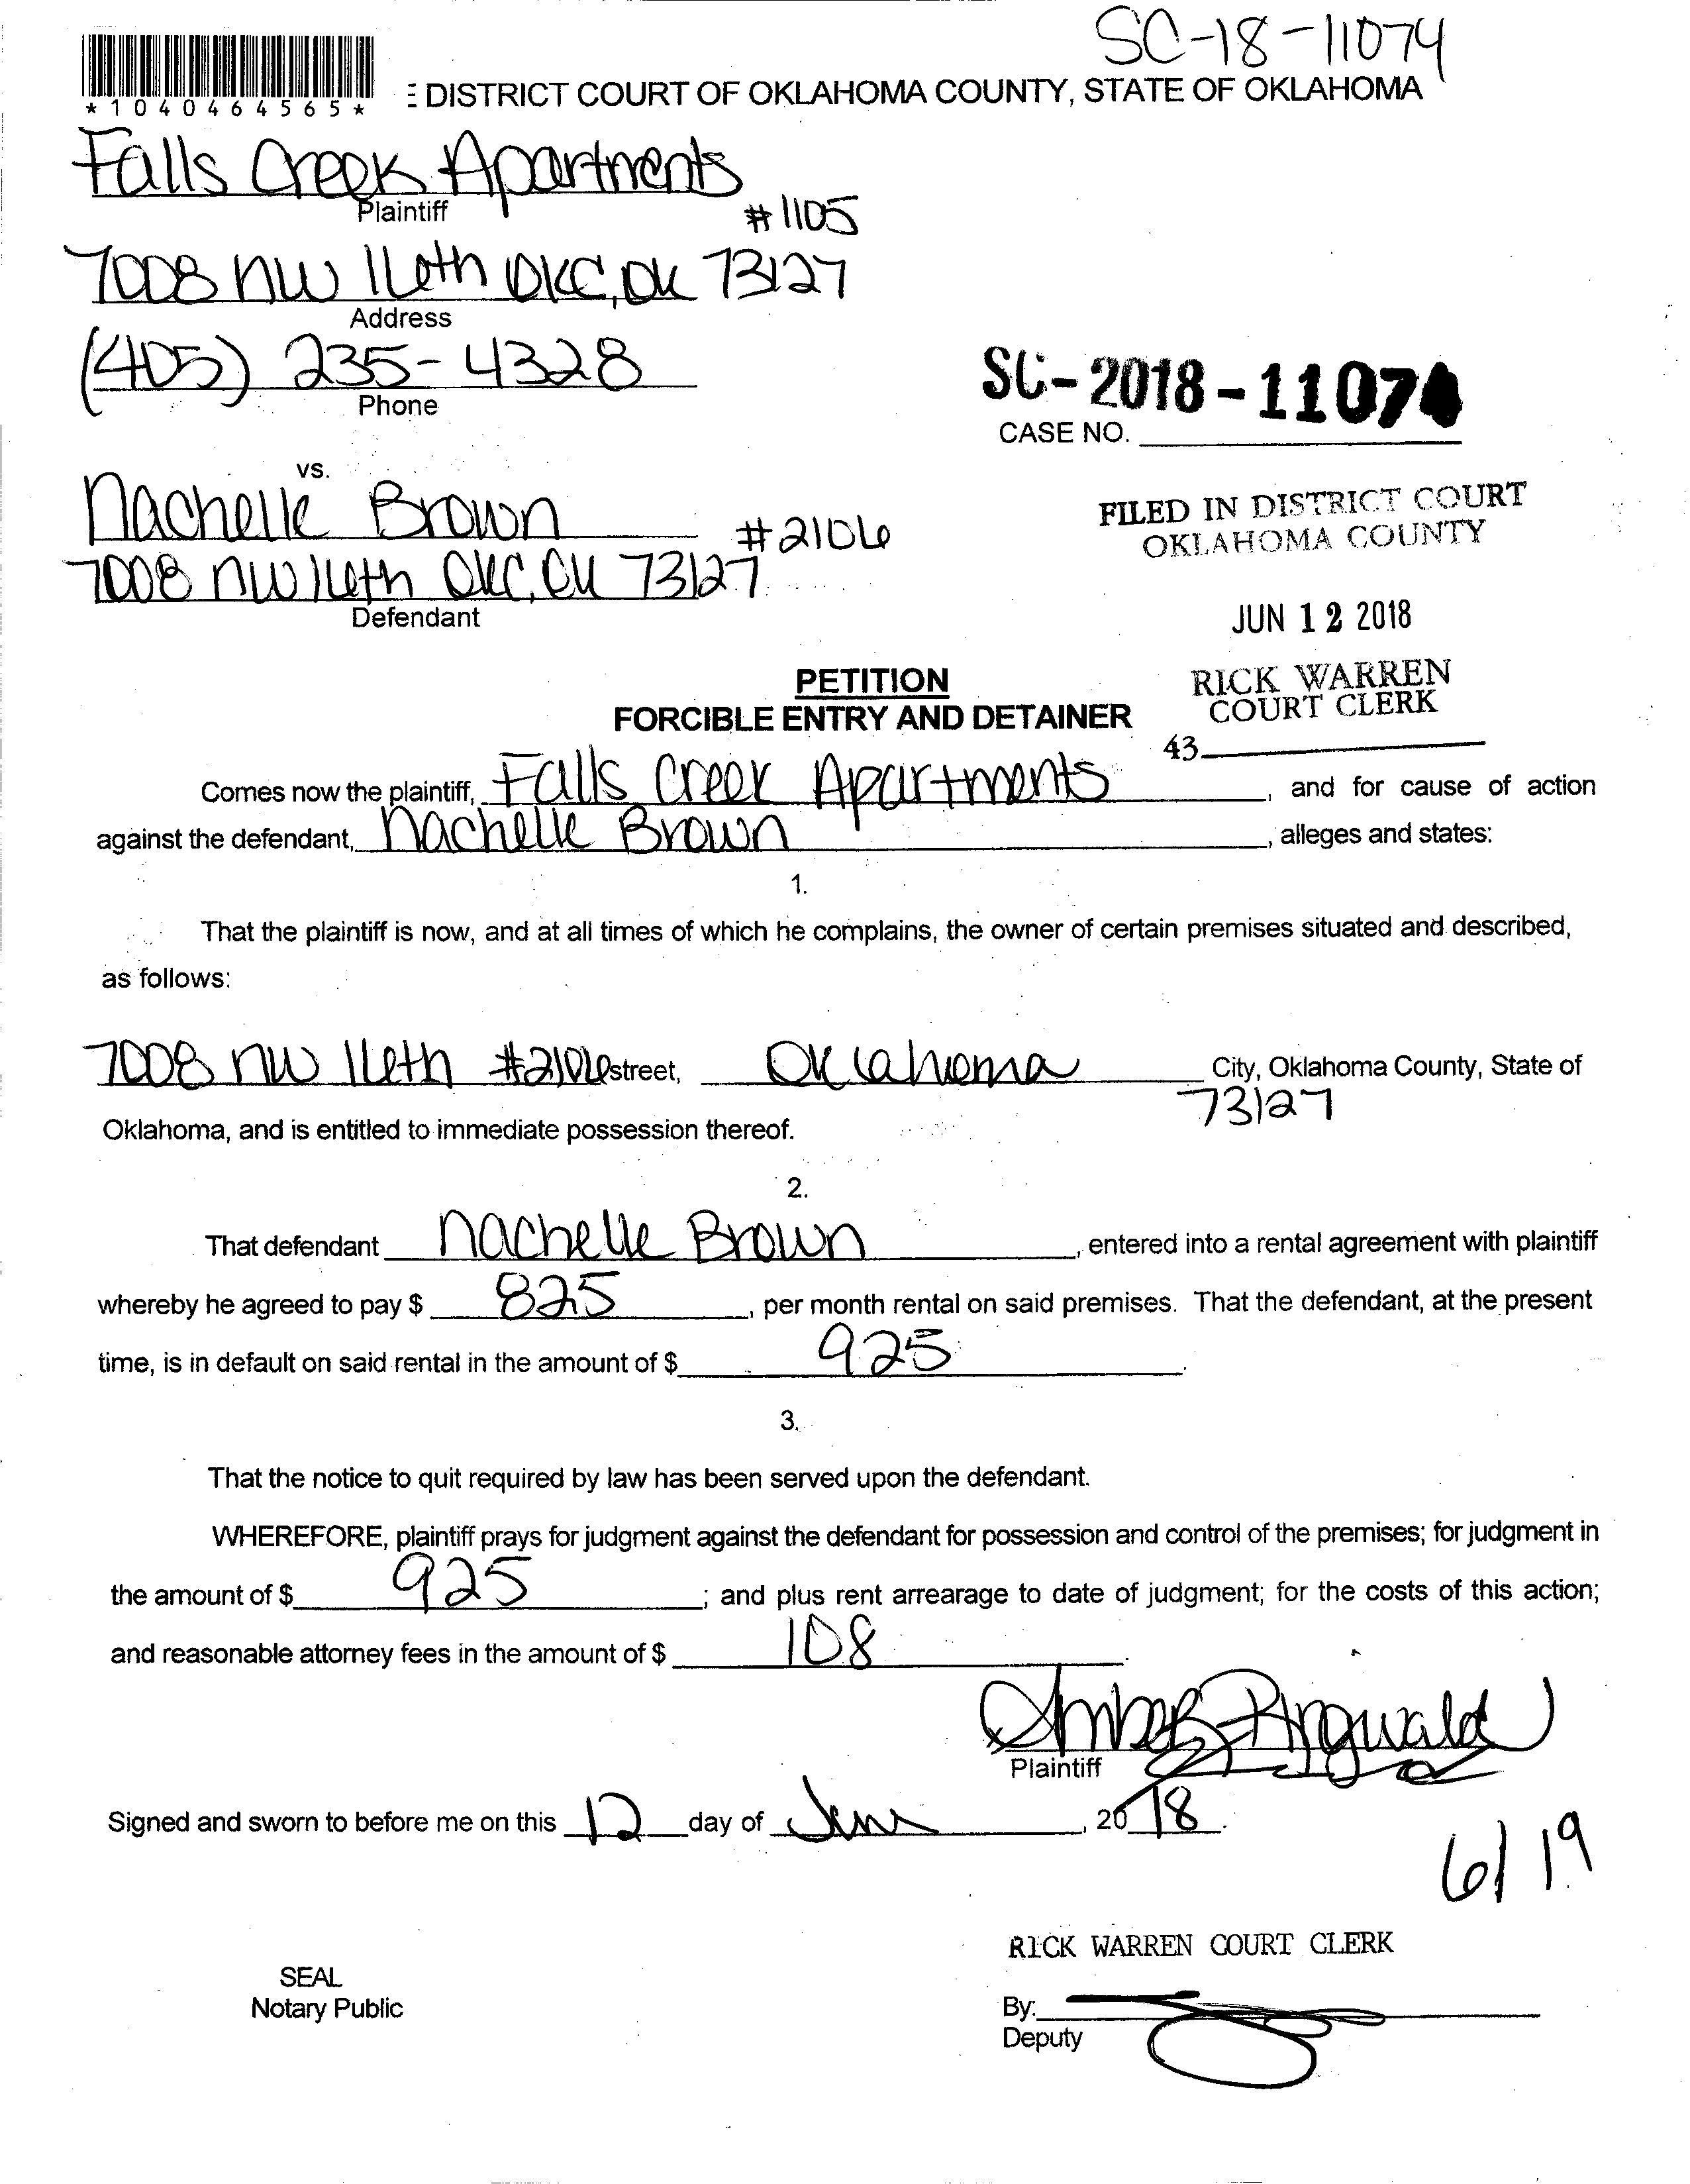 SC-18-11074
*1040464565*
DISTRICT COURT OF OKLAHOMA COUNTY, STATE OF OKLAHOMA
Falls Creek Apartments
Plaintiff
#1105
7008 NW 16th OKC, OK 73127
Address
(405) 235-4328
Phone
SC-2018-11074
CASE NO.
vs.
Nachelle Brown
#2106
7008 NW 16th OKC, OK 73127
Defendant
FILED IN DISTRICT COURT
OKLAHOMA COUNTY
JUN 12 2018
RICK WARREN
COURT CLERK
43
PETITION
FORCIBLE ENTRY AND DETAINER
Comes now the plaintiff, Falls Creek Apartments, and for cause of action
against the defendant, Nachelle Brown, alleges and states:
1.
That the plaintiff is now, and at all times of which he complains, the owner of certain premises situated and described,
as follows:
7008 NW 16th #2106 street, Oklahoma City, Oklahoma County, State of
73127
Oklahoma, and is entitled to immediate possession thereof.
2.
That defendant Nachelle Brown, entered into a rental agreement with plaintiff
whereby he agreed to pay $ 825, per month rental on said premises. That the defendant, at the present
time, is in default on said rental in the amount of $ 925.
3.
That the notice to quit required by law has been served upon the defendant.
WHEREFORE, plaintiff prays for judgment against the defendant for possession and control of the premises; for judgment in
the amount of $ 925; and plus rent arrearage to date of judgment; for the costs of this action;
and reasonable attorney fees in the amount of $ 108.
Amber Ringwald
Plaintiff
Signed and sworn to before me on this 12 day of June, 2018.
6/19
RICK WARREN COURT CLERK
SEAL
Notary Public
By:
Deputy